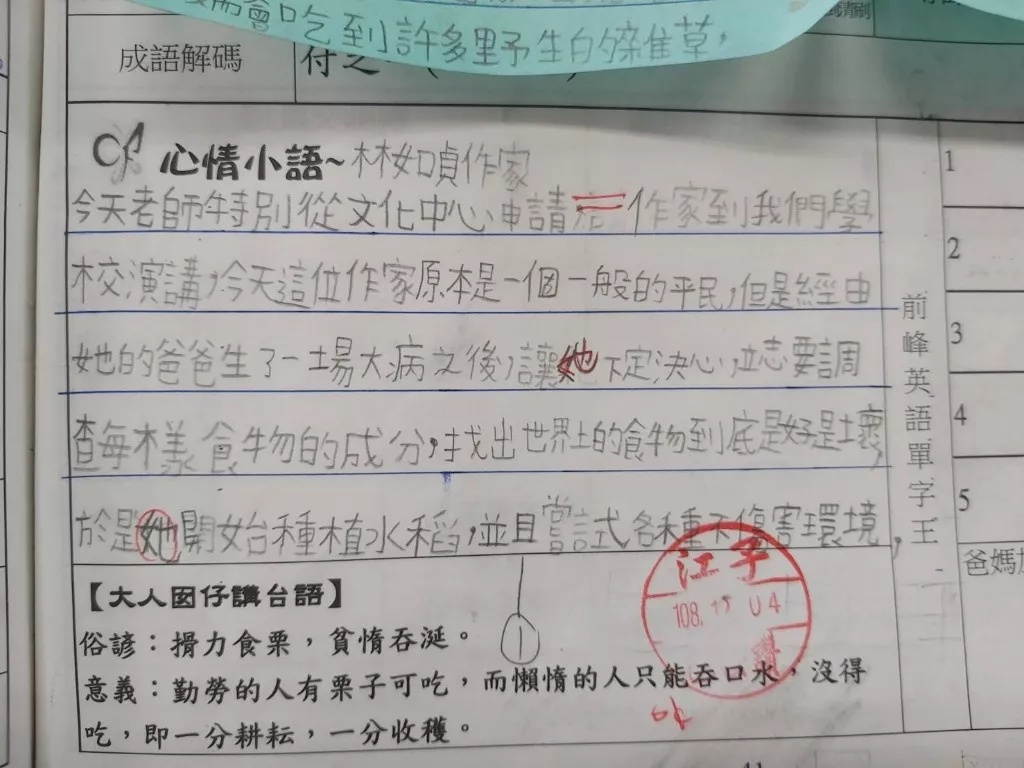 會吃到許多野生的雜草，
成語解碼
心情小語~林如貞作家
今天老師特別從文化中心申請 作家到我們學
校演講，今天這位作家原本是一個一般的平民，但是經由
她的爸爸生了一場大病之後，讓她下定決心，立志要調
查每樣食物的成分，找出世界上的食物到底是好是壞，
於是她開始種植水稻，並且嘗試各種不傷害環境，
【大人囡仔講台語】
俗諺：搰力食栗，貧惰吞涎。
意義：勤勞的人有栗子可吃，而懶惰的人只能吞口水，沒得
吃，即一分耕耘，一分收穫。
江子
108. 04
前峰英語單字王
1
2
3
4
5
爸媽